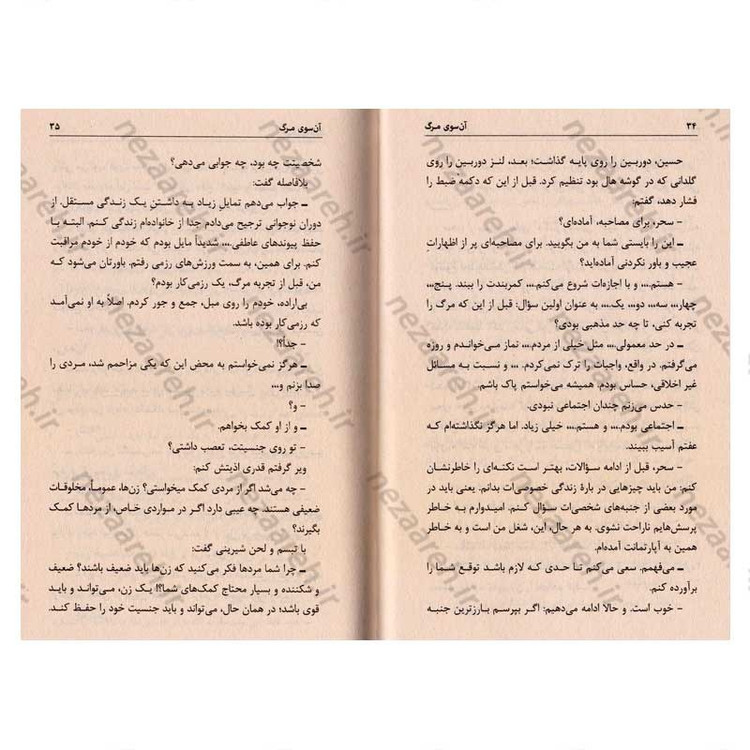 ۳۴ آن‌سوی مرگ
حسین، دوربین را روی پایه گذاشت؛ بعد، لنز دوربین را روی
گلدانی که در گوشه هال بود تنظیم کرد. قبل از این که دکمه ضبط را
فشار دهد، گفتم:
- سحر، برای مصاحبه، آماده‌ای؟
ـ این را بایستی شما به من بگویید. برای مصاحبه‌ای پر از اظهاراتِ
عجیب و باور نکردنی آماده‌اید؟
- هستم.... و با اجازه‌ات شروع می‌کنم.... کمربندت را ببند. پنج...،
چهار... سه... دو... یک.... به عنوان اولین سؤال: قبل از این که مرگ را
تجربه کنی، تا چه حد مذهبی بودی؟
ـ در حد معمولی.... مثل خیلی از مردم.... نماز می‌خواندم و روزه
می‌گرفتم. در واقع، واجبات را ترک نمی‌کردم. ... و نسبت به مسائل
غیر اخلاقی، حساس بودم. همیشه می‌خواستم پاک باشم.
- حدس می‌زنم چندان اجتماعی نبودی.
ـ اجتماعی بودم.... و هستم.... خیلی زیاد. اما هرگز نگذاشته‌ام که
عفتم آسیب ببیند.
- سحر، قبل از ادامه سؤالات، بهتر است نکته‌ای را خاطرنشان
کنم: من باید چیزهایی در بارهٔ زندگی خصوصی‌ات بدانم. یعنی باید در
مورد بعضی از جنبه‌های شخصی‌ات سؤال کنم. امیدوارم به خاطر
پرسش‌هایم ناراحت نشوی. به هر حال، این، شغل من است و به خاطر
همین به آپارتمانت آمده‌ام.
ـ می‌فهمم. سعی می‌کنم تا حدی که لازم باشد توقع شما را
برآورده کنم.
- خوب است. و حالا ادامه می‌دهیم: اگر بپرسم بارزترین جنبه
آن‌سوی مرگ ۳۵
شخصیتت چه بود، چه جوابی می‌دهی؟
بلافاصله گفت:
ـ جواب می‌دهم تمایل زیاد به داشتنِ یک زندگی مستقل. از
دوران نوجوانی ترجیح می‌دادم جدا از خانواده‌ام زندگی کنم. البته با
حفظ پیوندهای عاطفی.... شدیداً مایل بودم که خودم از خودم مراقبت
کنم. برای همین، به سمت ورزش‌های رزمی رفتم. باورتان می‌شود که
من، قبل از تجربه مرگ، یک رزمی‌کار بودم؟
بی‌اراده، خودم را روی مبل، جمع و جور کردم. اصلاً به او نمی‌آمد
که رزمی‌کار بوده باشد.
- جداً؟!
ـ هرگز نمی‌خواستم به محض این که یکی مزاحمم شد، مردی را
صدا بزنم و...
- و؟
ـ و از او کمک بخواهم.
- تو روی جنسیتت، تعصب داشتی؟
ویر گرفتم قدری اذیتش کنم:
- چه می‌شد اگر از مردی کمک میخواستی؟ زن‌ها، عموماً، مخلوقات
ضعیفی هستند. چه عیبی دارد اگر در مواردی خاص، از مردها کمک
بگیرند؟
با تبسم و لحن شیرینی گفت:
ـ چرا شما مردها فکر می‌کنید که زن‌ها باید ضعیف باشند؟ ضعیف
و شکننده و بسیار محتاج کمک‌های شما؟! یک زن، می‌تواند و باید
قوی باشد؛ در همان حال، می‌تواند و باید جنسیت خود را حفظ کند.
nezaareh.ir